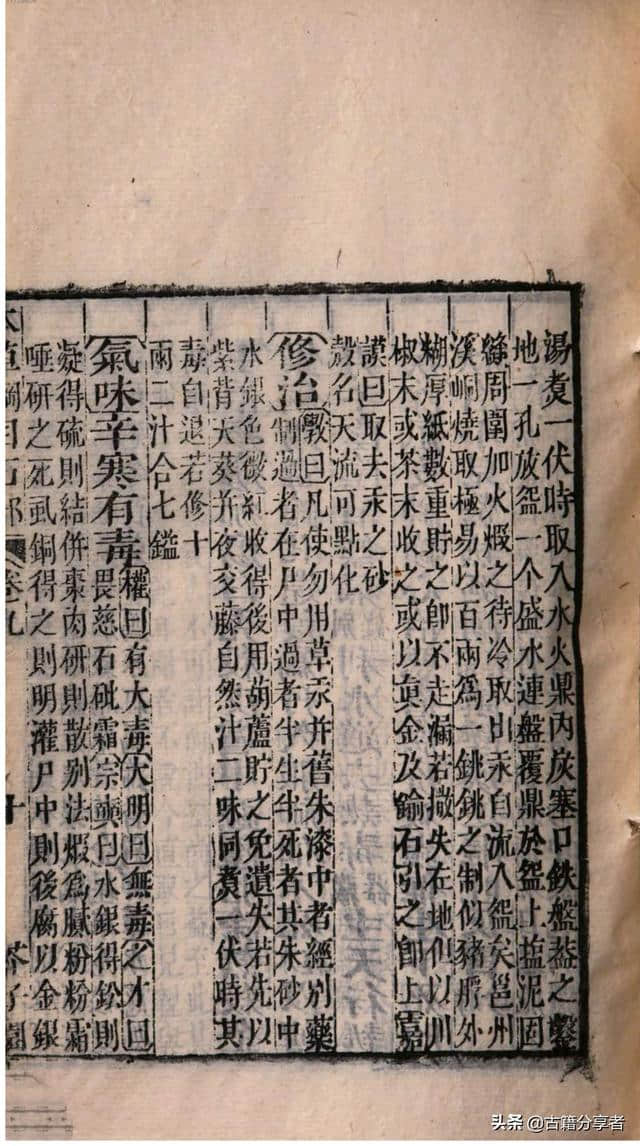 湯煮一伏時取入水火鼎內炭塞口鉄盤葢之鑿
地一孔放盌一个盛水連盤覆鼎於盌上塩泥固
縫周圍加火煆之待冷取出汞自流入盌矣邕州
溪峒燒取極易以百兩爲一銚銚之制似猪脬外
糊厚紙數重貯之卽不走漏若撒失在地但以川
椒末或茶末收之或以眞金及鍮石引之卽上嘉
謨曰取去汞之砂
殼名天流可點化
修治斆曰凡使勿用草汞并舊朱漆中者經別藥
制過者在尸中過者半生半死者其朱砂中
水銀色微紅收得後用葫蘆貯之免遺失若先以
紫背天葵并夜交藤自然汁二味同煮一伏時其
毒自退若修十
兩二汁合七鎰
氣味辛寒有毒權曰有大毒大明曰無毒之才曰
畏慈石砒霜宗奭曰水銀得鉛則
凝得硫則結併棗肉研則散别法煆爲膩粉粉霜
唾研之死虱銅得之則明灌尸中則後腐以金銀
本草綱目石部 卷九 十 芥子園
头条@古籍分享者